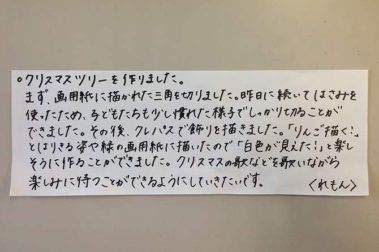 ○クリスマスツリーを作りました。
まず、画用紙に描かれた三角を切りました。昨日に続いてはさみを
使ったため、子どもたちも少し慣れた様子でしっかり切ることが
できました。その後、クレパスで飾りを描きました。「りんご描く!」
とはりきる姿や緑の画用紙に描いたので「白色が見えた!」と楽し
そうに作ることができました。クリスマスの歌などを歌いながら
楽しみに待つことができるようにしていきたいです。 〈れもん〉